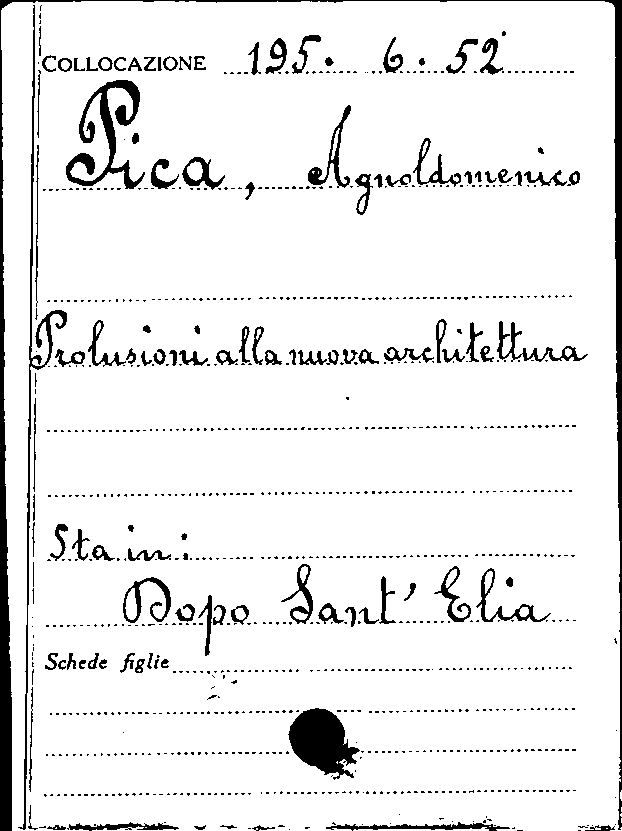 COLLOCAZIONE 195. 6. 52
Pica, Agnoldomenico
Prolusioni alla nuova architettura
Sta in:
Dopo Sant' Elia
Schede figlie